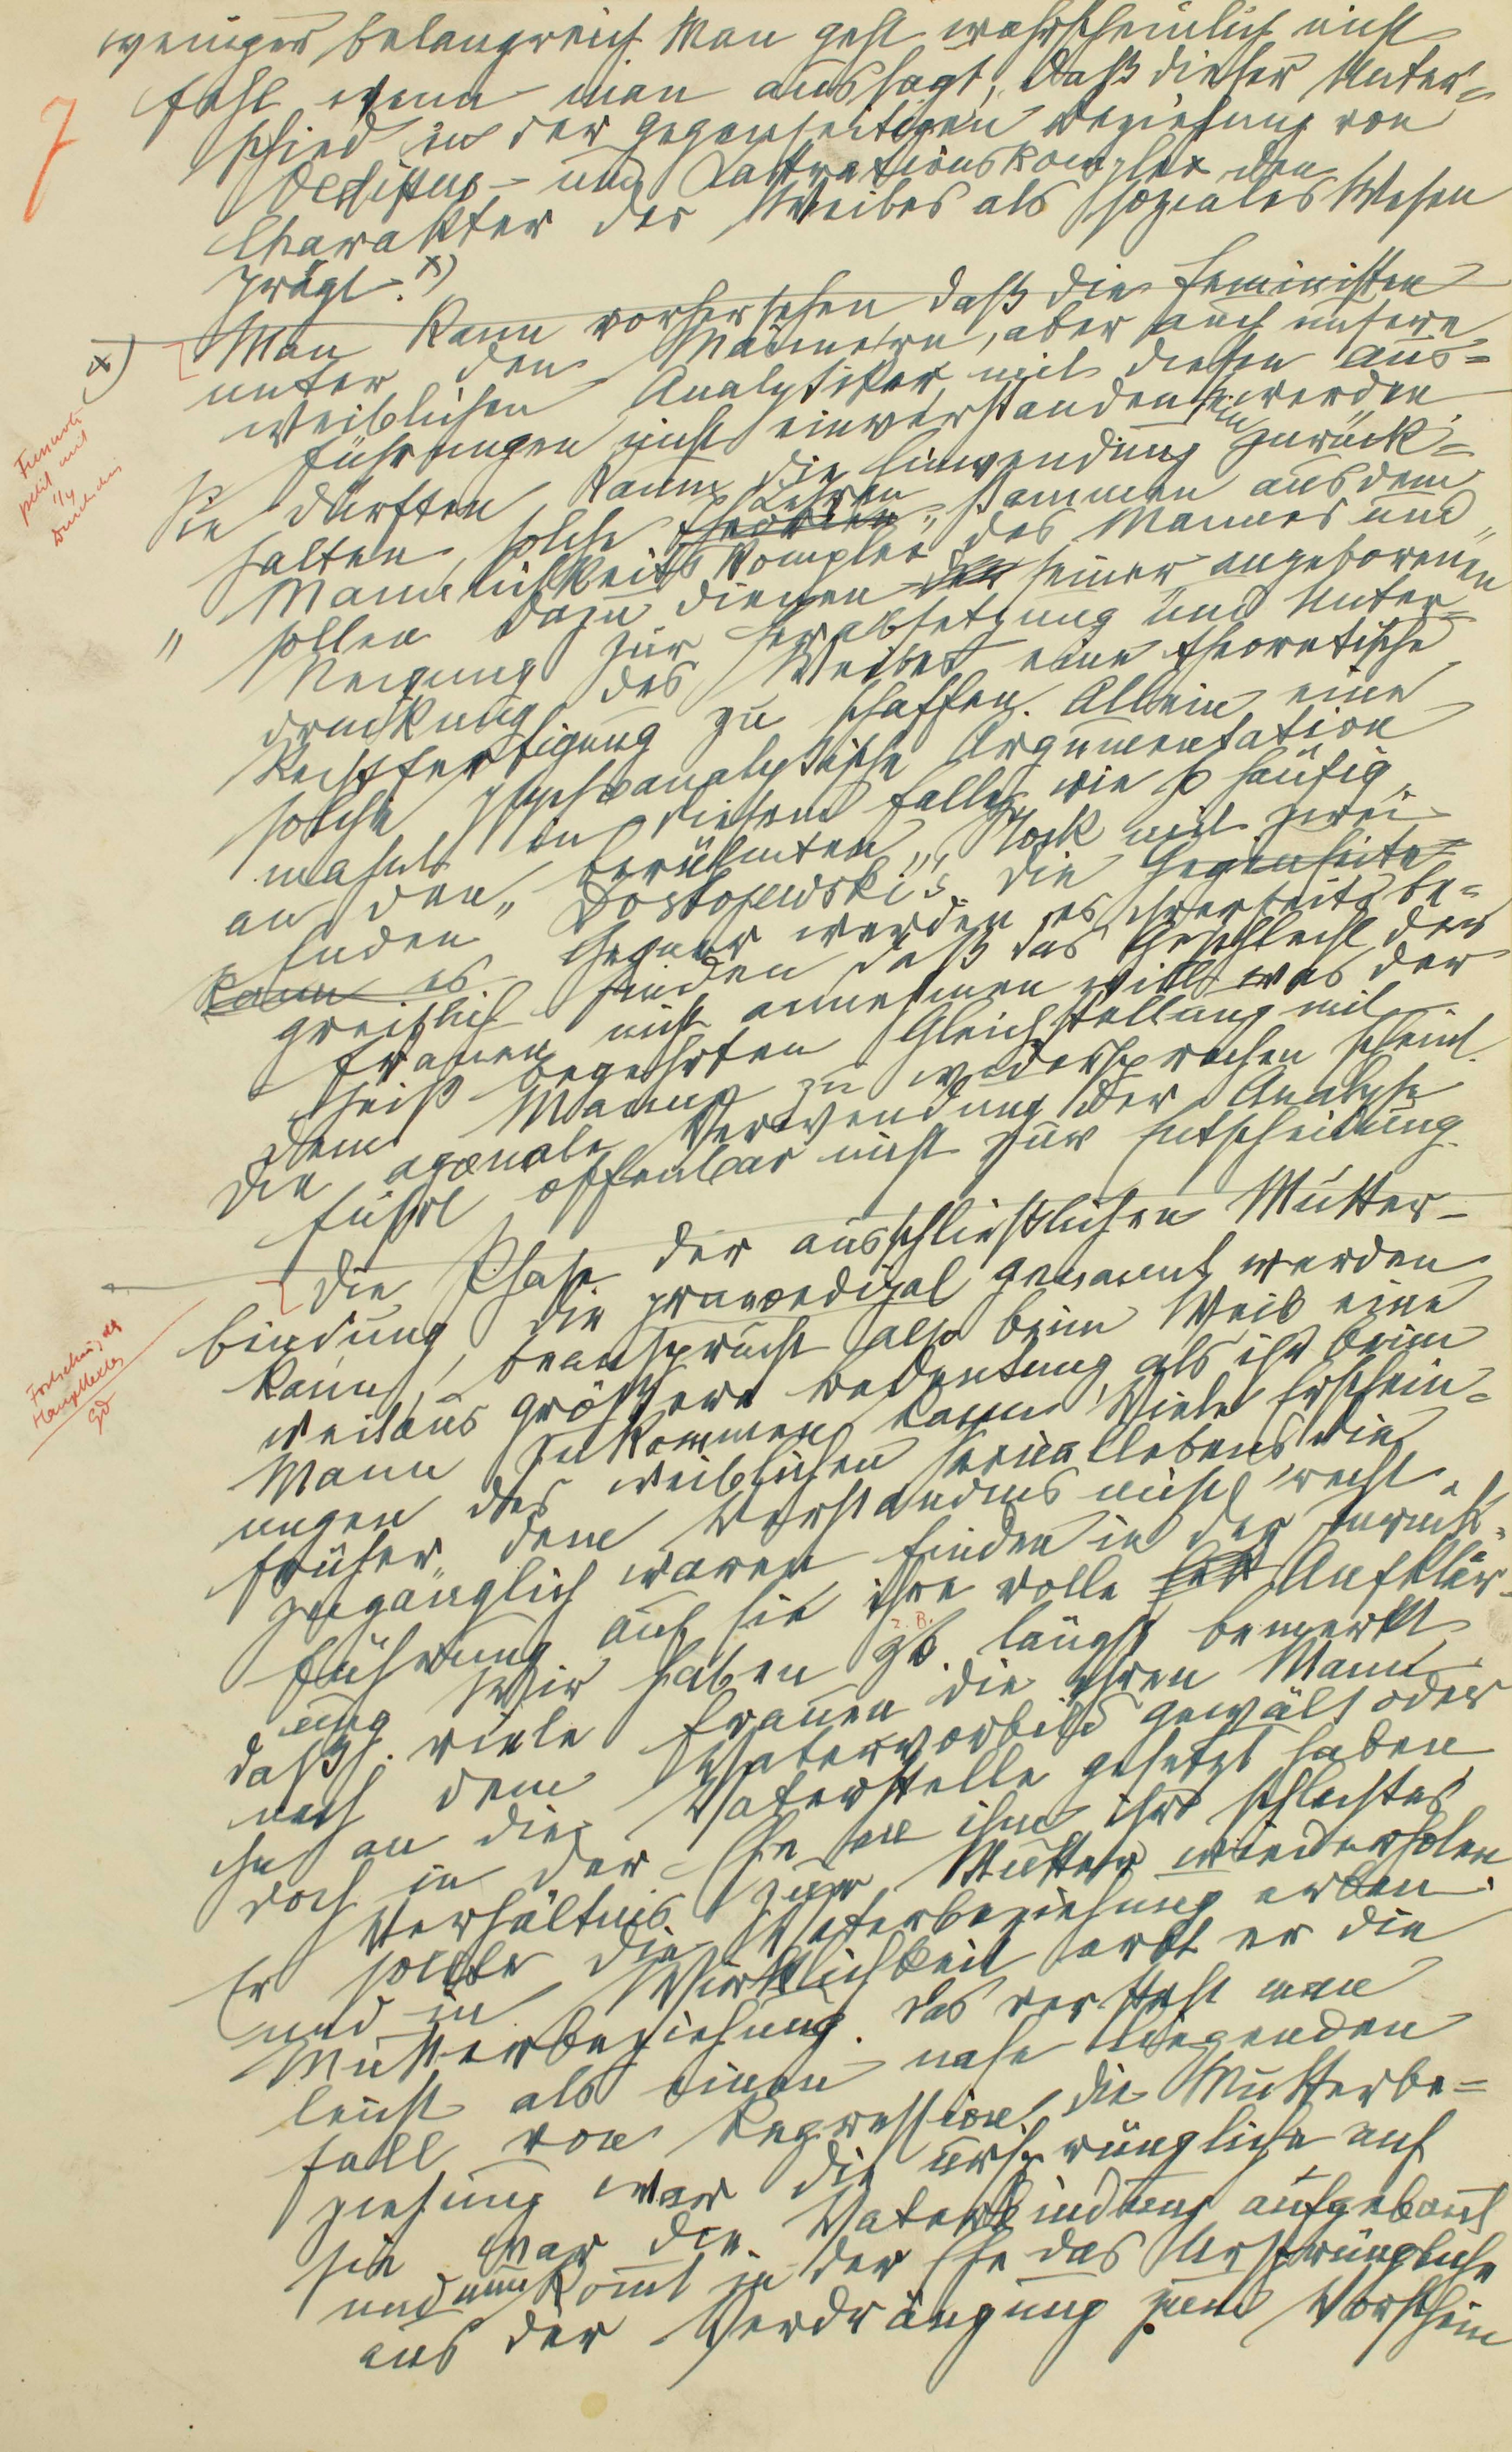 7
weniger belangreich. Man geht wahrscheinlich nicht
fehl, wenn man aussagt, daß dieser Unter=
schied in der gegenseitigen Beziehung von
Oedipus- und Kastrationskomplex den
Charakter des Weibes als soziales Wesen
prägt. x)
x) Man kann vorhersehen daß die Feministen
unter den Männern, aber auch unsere
weiblichen Analytiker mit diesen Aus=
führungen nicht einverstanden sein werden.
Sie dürften kaum die Einwendung zurück=
halten, solche Theorien Lehren stammen aus dem
„Männlichkeitskomplex" des Mannes und
sollen dazu dienen seiner angeborenen
Neigung zur Herabsetzung und Unter=
drückung des Weibes eine theoretische
Rechtfertigung zu schaffen. Allein eine
solche psychoanalytische Argumentation
mahnt in diesem Falle wie so häufig
an den berühmten „Stock mit zwei
Enden" Dostojewski's. Die Gegenseite
kann es Gegner werden es ihrerseits be=
greiflich finden daß das Geschlecht der
Frauen nicht annehmen will was der
heiß begehrten Gleichstellung mit
dem Manne zu widersprechen scheint.
Die agonale Verwendung der Analyse
führt offenbar nicht zur Entscheidung.
Die Phase der ausschließlichen Mutter-
bindung, die praeoedipal genannt werden
kann, beansprucht also beim Weib eine
weitaus größere Bedeutung, als ihr beim
Mann zukommen kann. Viele Erschein=
ungen des weiblichen Sexuallebens die
früher dem Verständnis nicht recht
zugänglich waren finden in der Zurück=
führung auf sie ihre volle Aufklär-
ung. Wir haben zb. z. B. längst bemerkt
daß viele Frauen die ihren Mann
nach dem Vatervorbild gewält oder
ihn an die Vaterstelle gesetzt haben
doch in der Ehe an ihm ihr schlechtes
Verhältnis zur Mutter wiederholen.
Er sollte die Vaterbeziehung erben
und in Wirklichkeit erbt er die
Mutterbeziehung. Das versteht man
leicht als einen nahe liegenden
Fall von Regression. Die Mutterbe=
ziehung war die ursprüngliche, auf
sie war die Vaterbindung aufgebaut
und nun komt in der Ehe das Ursprüngliche
aus der Verdrängung zum Vorschein
Fussnote
petit mit
1/4
Durchschuss
Fortsetzung des
Haupttextes